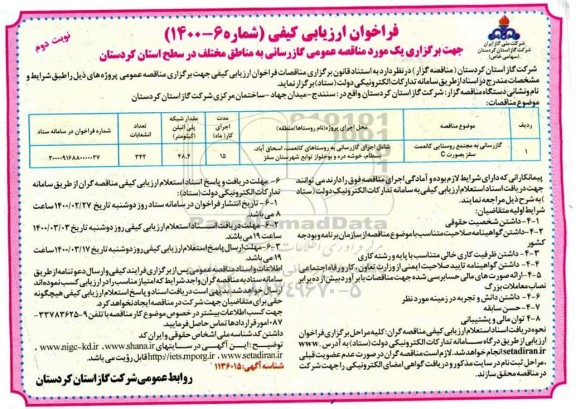 شرکت ملی گاز ایران
شرکت گاز استان کردستان
(سهامی خاص)
فراخوان ارزیابی کیفی (شماره ۶-۱۴۰۰)
نوبت دوم
جهت برگزاری یک مورد مناقصه عمومی گازرسانی به مناطق مختلف در سطح استان کردستان
شرکت گاز استان کردستان (مناقصه گزار) در نظر دارد به استناد قانون برگزاری مناقصات فراخوان ارزیابی کیفی جهت برگزاری مناقصه عمومی پروژه های ذیل را طبق شرایط و
مشخصات مندرج در اسناد از طریق سامانه تدارکات الکترونیکی دولت (ستاد) برگزار نماید.
نام و نشانی دستگاه مناقصه گزار: شرکت گاز استان کردستان واقع در: سنندج-میدان جهاد-ساختمان مرکزی شرکت گاز استان کردستان
موضوع مناقصات:
ردیف | موضوع مناقصه | محل اجرای پروژه (نام روستاها/منطقه) | مدت اجرای کار (ماه) | مقدار شبکه پلی اتیلن (کیلومتر) | تعداد انشعابات | شماره فراخوان در سامانه ستاد
۱ | گازرسانی به مجتمع روستایی کانعمت سقز بصورت C | شامل اجرای گازرسانی به روستاهای کانعمت، اسحاق آباد، بسطام، خوشه دره و بوغه‌لوژ توابع شهرستان سقز | ۱۵ | ۴۸.۴ | ۳۴۲ | ۲۰۰۰۰۹۱۶۸۸۰۰۰۰۲۷
پیمانکارانی که دارای شرایط لازم بوده و آمادگی اجرای مناقصه فوق را دارند می توانند
جهت دریافت اسناد استعلام ارزیابی کیفی به سامانه تدارکات الکترونیک دولت (ستاد
) به شرح ذیل مراجعه نمایند.
شرایط اولیه متقاضیان:
۱-۴- داشتن شخصیت حقوقی
۲-۴- داشتن گواهینامه صلاحیت متناسب با موضوع مناقصه از سازمان برنامه و بودجه
کشور
۳-۴- داشتن ظرفیت کاری خالی متناسب با پایه و رشته کاری
۴-۴- داشتن گواهینامه تایید صلاحیت ایمنی از وزارت تعاون، کار و رفاه اجتماعی
۵-۴- ارائه صورت های مالی حسابرسی شده جهت مناقصات با برآورد بیش از ده برابر
نصاب معاملات بزرگ
۶-۴- داشتن دانش و تجربه در زمینه مورد نظر
۷-۴- حسن سابقه
۸-۴- توان مالی و پشتیبانی
نحوه دریافت اسناد استعلام ارزیابی کیفی مناقصه گران: کلیه مراحل برگزاری فراخوان
ارزیابی از طریق درگاه سامانه تدارکات الکترونیکی دولت (ستاد) به آدرس www.
setadiran.ir انجام خواهد شد. لازم است مناقصه گران در صورت عدم عضویت قبلی
، مراحل ثبت نام در سایت مذکور و دریافت گواهی امضای الکترونیکی را جهت شرکت
در مناقصه محقق سازند.
۶- مهلت دریافت و پاسخ اسناد استعلام ارزیابی کیفی مناقصه گران از طریق سامانه
تدارکات الکترونیکی دولت (ستاد):
۱-۶- تاریخ انتشار فراخوان در سامانه روز دوشنبه تاریخ ۱۴۰۰/۰۲/۲۷ ساعت
۸ می باشد.
۲-۶- مهلت دریافت اسناد استعلام ارزیابی کیفی روز دوشنبه تاریخ ۱۴۰۰/۰۳/۰۳
ساعت ۱۹ می باشد.
۳-۶- مهلت ارسال پاسخ استعلام ارزیابی کیفی روز دوشنبه تاریخ ۱۴۰۰/۰۳/۱۷
ساعت ۱۹ می باشد.
اطلاعات و اسناد مناقصه عمومی پس از برگزاری فرایند کیفی و ارسال دعوتنامه از طریق
سامانه ستاد به مناقصه گران واجد شرایط که امتیاز مناسب را در ارزیابی کسب نموده اند
ارسال خواهد شد. بدیهی است دریافت اسناد و پاسخ استعلام ارزیابی کیفی هیچگونه
حقی برای متقاضیان جهت شرکت در مناقصه ایجاد نخواهد کرد.
جهت کسب اطلاعات بیشتر در خصوص موضوع کار مناقصه با تلفن ۹-۳۳۷۸۳۶۲۵-
۰۸۷ امور قراردادها تماس حاصل فرمایید.
داشتن کد شناسه ملی اشخاص حقوقی و ایران کد
توضیح: این آگهی در سایت‌های www.shana.ir، www.nigc-kd.ir،
www.setadiran.ir، http://iets.mporg.ir قابل رؤیت می باشد.
شناسه آگهی: ۱۱۳۶۰۱۵
روابط عمومی شرکت گاز استان کردستان